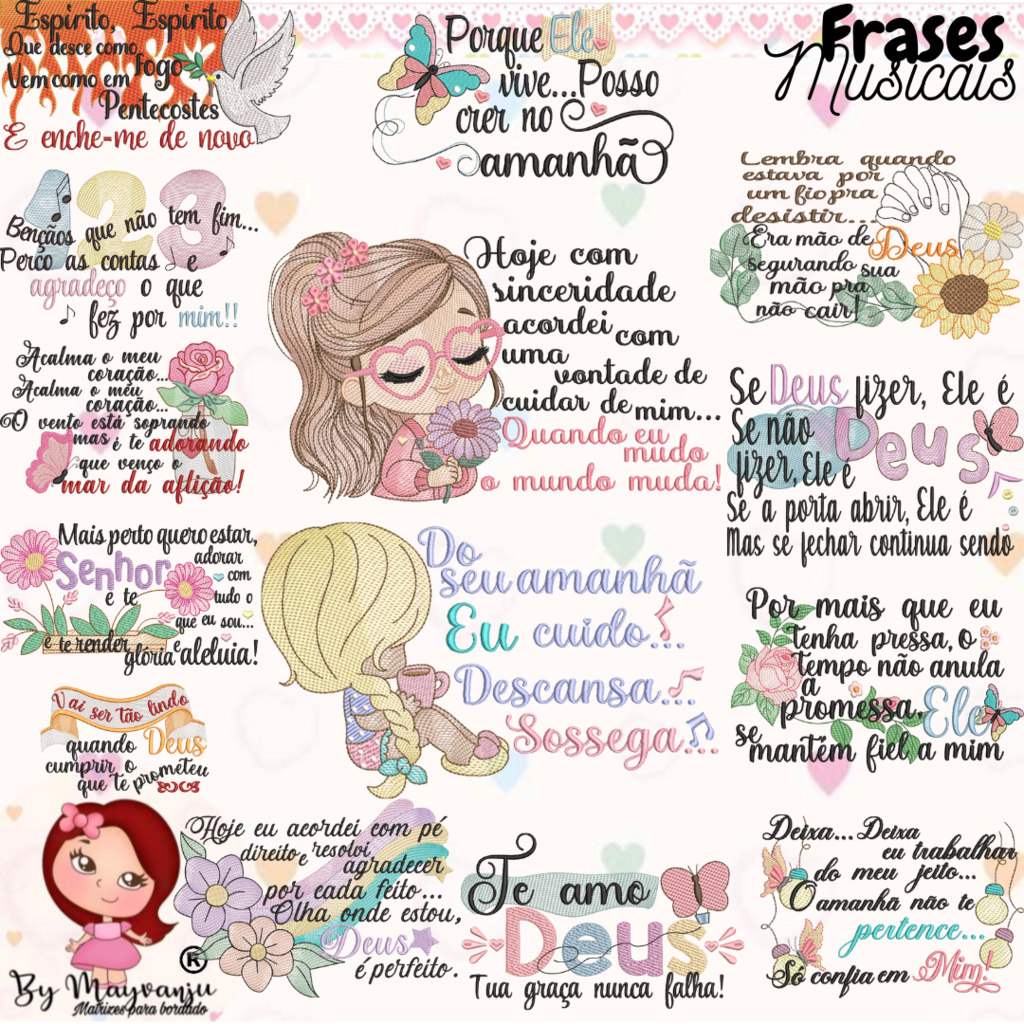 Espírito, Espírito
Que desce como
Fogo
Vem como em
Pentecostes
E enche-me de novo
Porque Ele
vive...Posso
crer no
amanhã
Frases
Musicais
123
Bençãos que não tem fim...
Perco as contas e
agradeço o que
fez por mim!!
Lembra quando
estava por
um fio pra
desistir...
Era mão de Deus
segurando sua
mão pra
não cair!
Hoje com
sinceridade
acordei com
uma
vontade de
cuidar de mim...
Quando eu
mudo
o mundo muda!
Acalma o meu
coração...
Acalma o meu
coração...
O vento está soprando
mas é te adorando
que venço o
mar da aflição!
Se Deus fizer, Ele é
Se não
fizer, Ele é
Deus
Se a porta abrir, Ele é
Mas se fechar continua sendo
Mais perto quero estar,
Senhor
adorar
com
e te
tudo o
que eu sou...
e te render
glória e aleluia!
Do
seu amanhã
Eu cuido...
Descansa...
Sossega...
Por mais que eu
tenha pressa, o
tempo não anula
a
promessa, Ele
se
mantém fiel a mim
Vai ser tão lindo
quando Deus
cumprir o
que te prometeu
By Mayvanju ®
Matrizes para bordado
Hoje eu acordei com pé
direito e resolvi
agradecer
por cada feito...
Olha onde estou,
Deus
é perfeito.
Te amo
Deus
Tua graça nunca falha!
Deixa... Deixa
eu trabalhar
do meu jeito...
O amanhã não te
pertence...
Só confia em Mim!